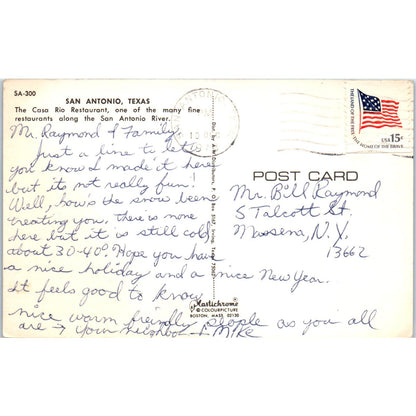 SA-300
SAN ANTONIO, TEXAS
The Casa Rio Restaurant, one of the many fine
restaurants along the San Antonio River.
Mr. Raymond & Family,
Just a line to let
you know I made it here
but its not really fun.
Well, how's the snow been
treating you. there is none
here but it is still cold
about 30-40°. Hope you have
a nice holiday and a nice New Year.
It feels good to know
nice warm freindly people as you all
are → your neighbor Mike
Plastichrome
© COLOURPICTURE
BOSTON, MASS. 02130
THE LAND OF THE FREE, THE HOME OF THE BRAVE
USA 15c
POST CARD
Mr. Bill Raymond
5 Talcott St.
Massena, N.Y.
13662